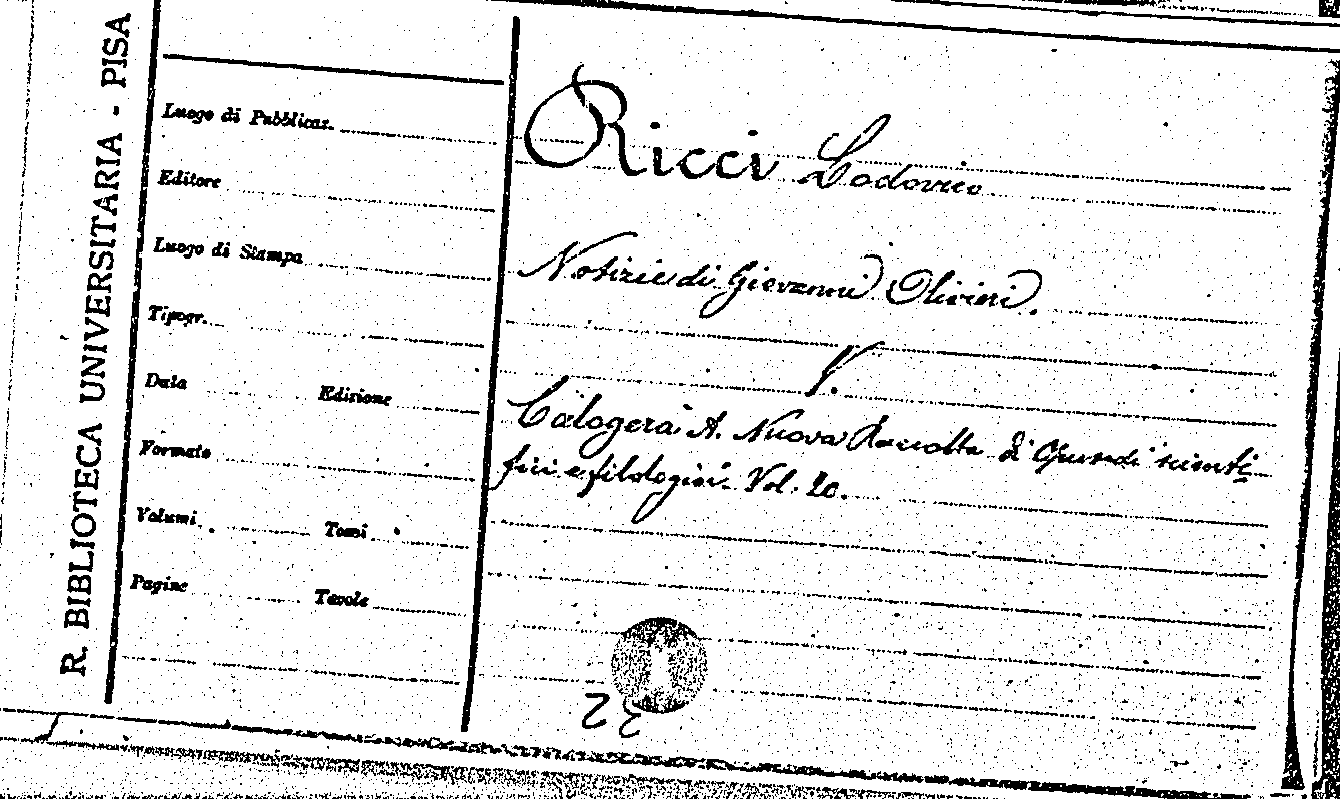 R. BIBLIOTECA UNIVERSITARIA - PISA
Luogo di Pubblicaz.
Editore
Luogo di Stampa
Tipogr.
Data Edizione
Formato
Volumi Tomi
Pagine Tavole
Ricci Lodovico
Notizie di Giovanni Olivieri.
V.
Calogerà A. Nuova Raccolta d'Opuscoli scienti
fici e filologici. Vol. 20.